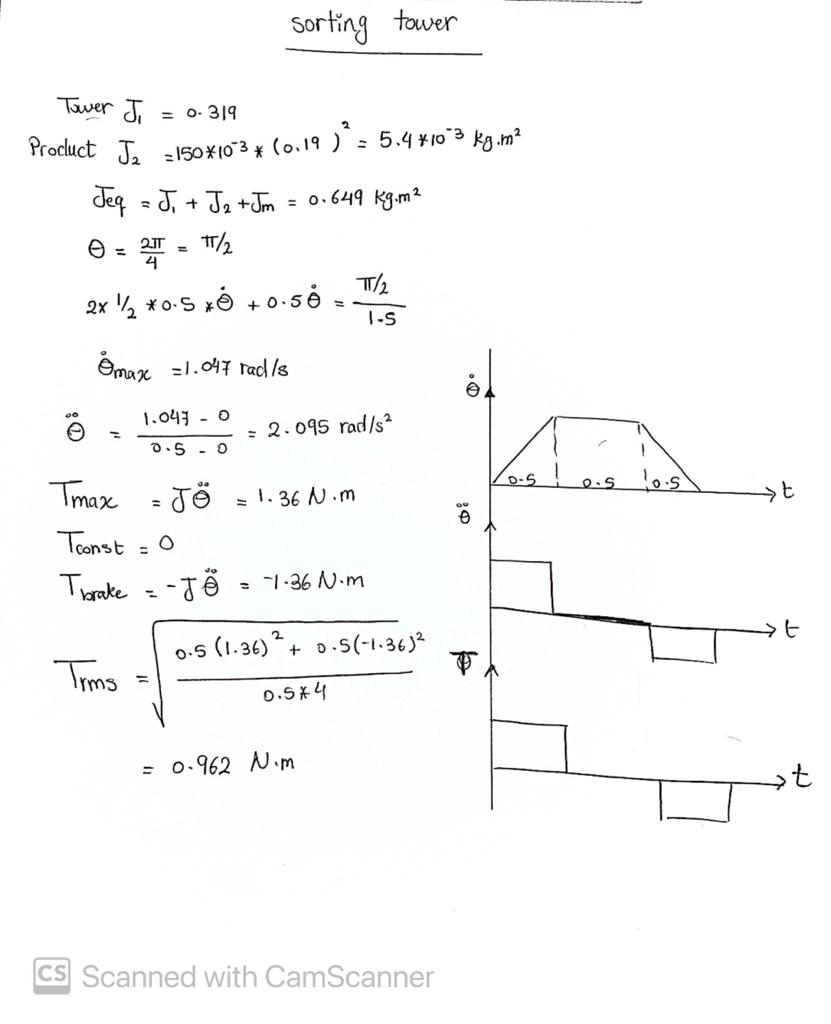 sorting tower
Tower J₁ = 0.319
Product J₂ = 150*10⁻³ * (0.19)² = 5.4*10⁻³ kg.m²
Jeq = J₁ + J₂ + Jm = 0.649 kg.m²
θ = 2π/4 = π/2
2x 1/2 *0.5 *θ̇ + 0.5θ̇ = (π/2)/1.5
θ̇max = 1.047 rad/s
θ̈ = (1.047 - 0)/(0.5 - 0) = 2.095 rad/s²
Tmax = Jθ̈ = 1.36 N.m
Tconst = 0
Tbrake = -Jθ̈ = -1.36 N.m
Trms = √((0.5(1.36)² + 0.5(-1.36)²)/(0.5*4))
= 0.962 N.m
θ̇
0.5 0.5 0.5 t
θ̈
t
t
CS Scanned with CamScanner